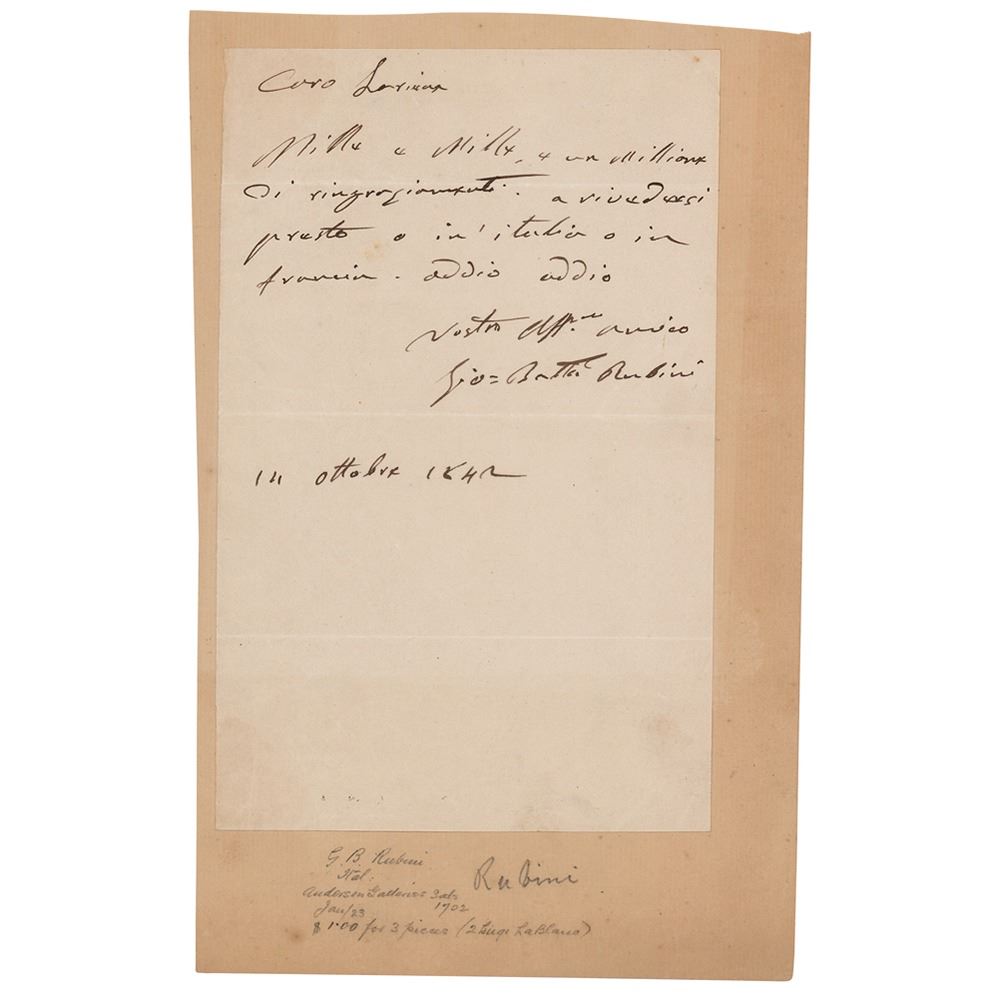 Caro
Mille e Mille, e un Millione
Di ringraziamenti. a rivederci
presto o in' italia o in
francia. addio addio
Vostro Aff.mo amico
Gio= Batta Rubini
14 ottobre 1842
G. B. Rubini
Ital:
Anderson Galleries Sale
Jan/23 1902
$1.00 for 3 pieces (2 Luigi LaBlance)
Rubini